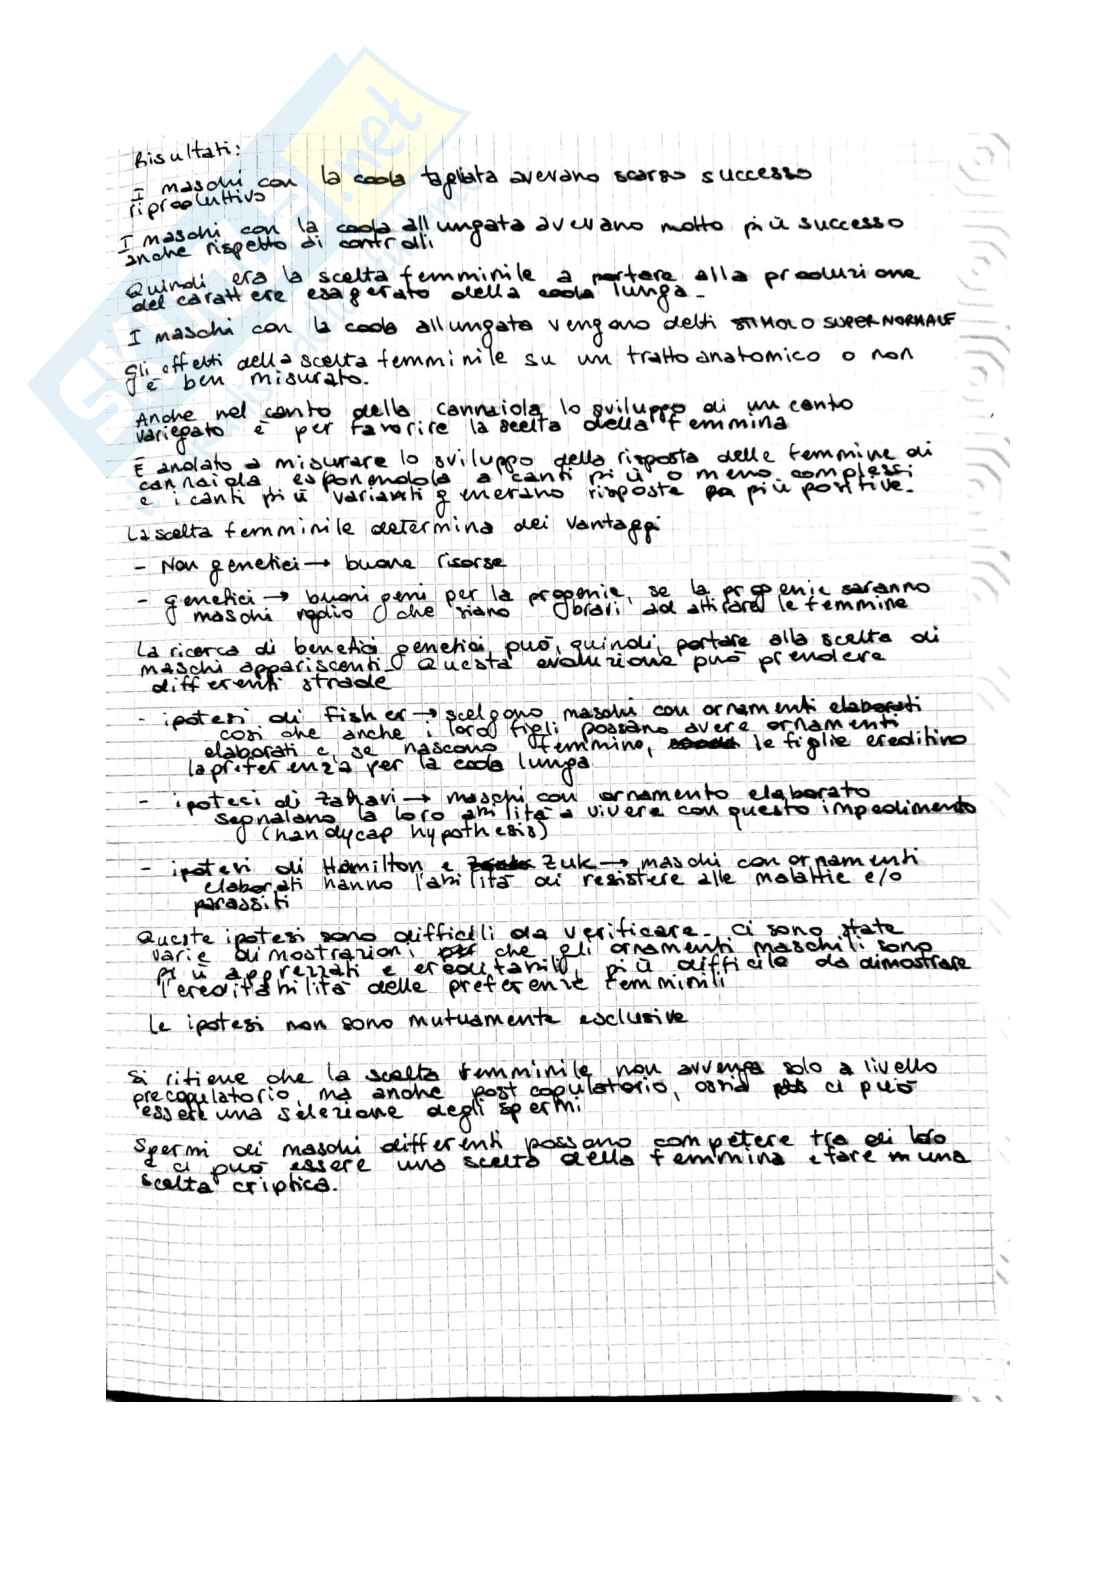 Risultati:
I maschi con la coda tagliata avevano scarso successo
riproduttivo
I maschi con la coda allungata avevano molto più successo
anche rispetto ai controlli
Quindi era la scelta femminile a portare alla produzione
del carattere esagerato della coda lunga.
I maschi con la coda allungata vengono detti STIMOLO SUPERNORMALE
Gli effetti della scelta femminile su un tratto anatomico o non
è ben misurato.
Anche nel canto della cannaiola lo sviluppo di un canto
variegato è per favorire la scelta della femmina
È andato a misurare lo sviluppo della risposta delle femmine di
cannaiola esponendola a canti più o meno complessi
e i canti più varianti generano risposte più positive.
La scelta femminile determina dei vantaggi
- Non genetici → buone risorse
- genetici → buoni geni per la progenie, se la progenie saranno
maschi voglio che siano bravi ad attirare le femmine
La ricerca di benefici genetici, può, quindi, portare alla scelta di
maschi appariscenti. Questa evoluzione può prendere
differenti strade
- ipotesi di Fisher → scelgono maschi con ornamenti elaborati
così che anche i loro figli possano avere ornamenti
elaborati e, se nascono femmine, le figlie ereditino
la preferenza per la coda lunga
- ipotesi di Zahavi → maschi con ornamento elaborato
segnalano la loro abilità a vivere con questo impedimento
(handycap hypothesis)
- ipotesi di Hamilton e Zuk → maschi con ornamenti
elaborati hanno l'abilità di resistere alle malattie e/o
parassiti
Queste ipotesi sono difficili da verificare. Ci sono state
varie dimostrazioni che gli ornamenti maschili sono
più apprezzati e ereditabili, più difficile da dimostrare
l'ereditabilità delle preferenze femminili
Le ipotesi non sono mutuamente esclusive
Si ritiene che la scelta femminile non avvenga solo a livello
precopulatorio, ma anche post copulatorio, ossia ci può
essere una selezione degli spermi
Spermi di maschi differenti possono competere tra di loro
e ci può essere una scelta della femmina e fare una
scelta criptica.